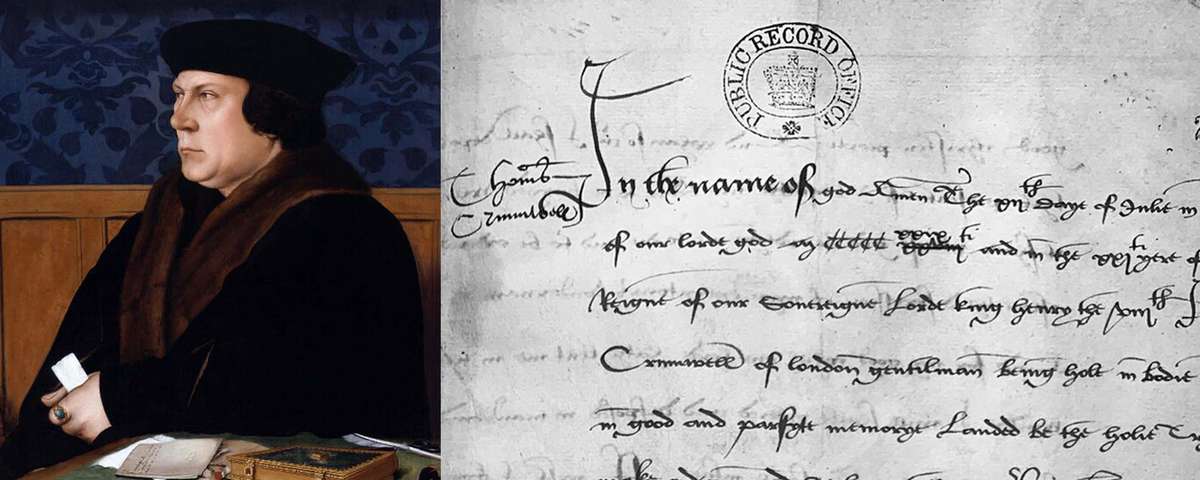 PUBLIC RECORD OFFICE
Thomas
Crumwell
In the name of god Amen The xijth daye of Julie in
of our lorde god m CCCCC xxix ti and in the xxjti yere of
Reigne of our Souereigne Lorde king henry the viijth I
Crumwell of london gentilman being hole in bodie
in good and parfyte memorye Lauded be the holie